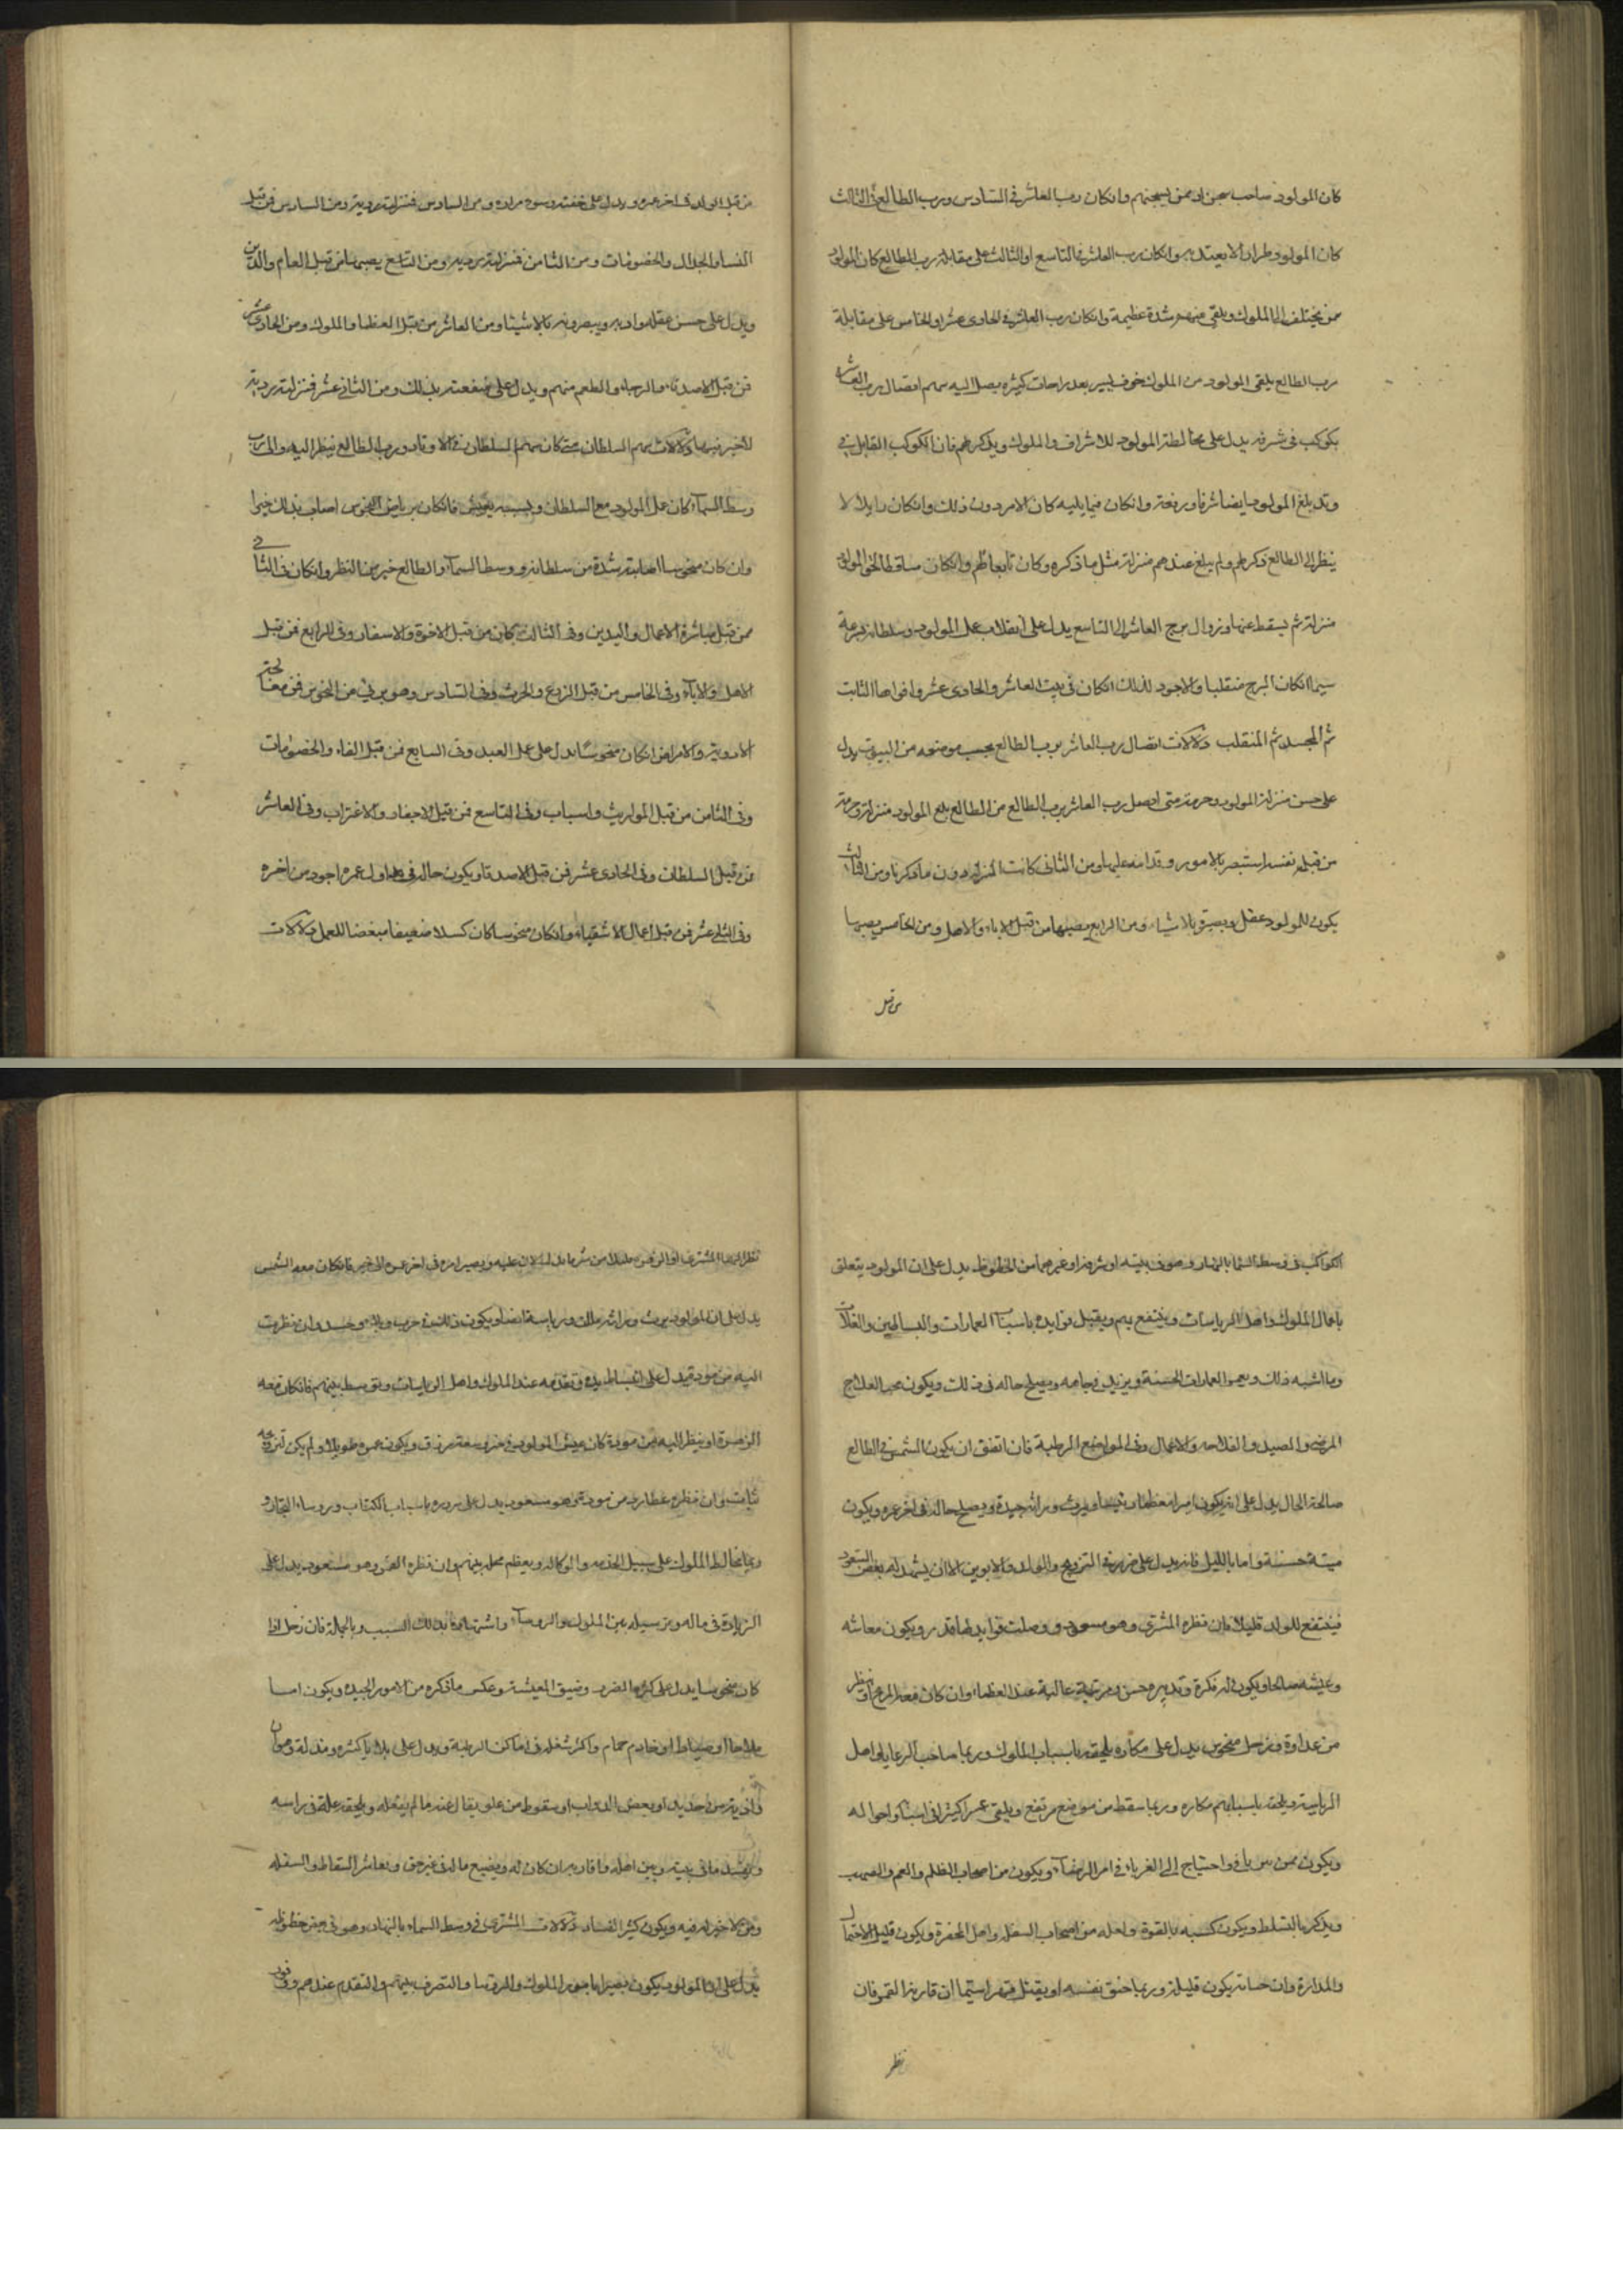 كان المولود صاحب سجن او ممن يسجنهم وان كان رب العاشر في السادس ورب الطالع في الثالث
كان المولود طرارا لا يعتد به وان كان رب العاشر في التاسع او الثالث على مقابلة رب الطالع كان المولود
ممن يختلف الى الملوك ويلقى منهم شدة عظيمة وان كان رب العاشر في الحادى عشر او الخامس على مقابلة
رب الطالع يلقى المولود من الملوك خوف يسير بعد راحات كثيرة يصل اليه منهم اتصال رب العاشر
بكوكب في شرفه يدل على مخالطة المولود للاشراف والملوك ويذكرهم فان الكوكب القابل في
وتد بلغ المولود ايضا شرفا ورفعة وان كان فيما يليه كان الامر دون ذلك وان كان زايلا لا
ينظر الى الطالع ذكرهم ولم يبلغ عندهم منزلة مثل ما ذكره وكان تابعا لهم وان كان ساقطا لحق المولود
منزلة ثم يسقط عنها وزوال برج العاشر الى التاسع يدل على انقلاب عمل المولود وسلطانه بسرعة
سيما ان كان البرج منقلبا والاجود لذلك ان كان في بيت العاشر والحادى عشر واقواها الثابت
ثم المجسد ثم المنقلب دلالات اتصال رب العاشر برب الطالع بحسب موضعه من البيوت يدل
على حسن منزلة المولود وحرمته متى اتصل رب العاشر برب الطالع من الطالع بلغ المولود منزلة وحرمة
من قبل نفسه استبصر بالامور وقدامه عليها ومن الثانى كانت المنزلة دون ما ذكرنا ومن الثالث
يكون للمولود عقل وبصرة بالاشياء ومن الرابع يصيبها من قبل الاباء والاهل ومن الخامس يصيبها
من قبل
من قبل الولد في اخر عمره ويدل على خفته وسوء مراده ومن السادس فمنزلته ردية ومن السادس فمن قبل
النساء والجدال والخصومات ومن الثامن فمنزلته ردية ومن التاسع يصيبها من قبل العلم والدين
ويدل على حسن عقله وادبه وبصرونه بالاشياء ومن العاشر من قبل العظماء والملوك ومن الحادى عشر
فمن قبل الاصدقاء والرجاء والطعم منهم ويدل على منفعته بذلك ومن الثانى عشر فمنزلته ردية
لا خير فيها دلالات سهم السلطان متى كان سهم السلطان في الاوتاد ورب الطالع ينظر اليه والى رب
وسط السماء كان عمل المولود مع السلطان وبسببه يعيش فان كان بريا من النحوس اصاب بذلك خيرا
وان كان منحوسا اصابته شدة من سلطانه ووسط السماء والطالع خير من النظر وان كان في الثانى
فمن قبل مباشرة الاعمال واليدين وفى الثالث كان من قبل الاخوة والاسفار وفى الرابع فمن قبل
الاهل والاباء وفى الخامس من قبل الزرع والحرث وفى السادس وهو برئ من النحوس فمن معالجة
الادوية والامراض ان كان منحوسا يدل على عمل العبيد وفى السابع فمن قبل النساء والخصومات
وفى الثامن من قبل المواريث واسباب وفى التاسع فمن قبل الاسفار والاغتراب وفى العاشر
فمن قبل السلطان وفى الحادى عشر فمن قبل الاصدقاء ويكون حاله في اول عمره اجود من اخره
وفى الثانى عشر فمن قبل اعمال الاشقياء وان كان منحوسا كان كسلا ضعيفا مبغضا للعمل دلالات
الكواكب في وسط السماء بالنهار وهو في بيته او شرفه او غيرهما من الحظوظ يدل على ان المولود يتعلق
باعمال الملوك واهل الرياسات وينتفع بهم ويقبل فوايده باسباب العمارات والبساتين والغلات
وما اشبه ذلك ويعمر العمارات الحسنة ويزيد في جاهه ويصلح حاله في ذلك ويكون محب العلاج
المرضى والصيد والفلاحة والاعمال وفى المواضع الرطبة فان اتفق ان يكون الشمس في الطالع
صالحة الحال يدل على انه يكون اميرا معظما رئيسا ويرث وراثة جيدة ويصلح حاله في اخر عمره ويكون
ميتة حسنة واما بالليل فانه يدل على ضرره في التزويج والولد والابوين الا ان يشهد له بعض السعود
فينتفع للولد قليلا فان نظره المشترى وهو مسعود ووصلت فوايد لها قدر ويكون معاشه
وعيشه صالحا ويكون له فكرة وتدبير حسن ومرتبة عالية عند العظماء وان كان معه المريخ او ينظر
من عداوة وزحل منحوس يدل على مكاره يلحقه باسباب الملوك وربما صاحب الرعايا الى اهل
الرياسة ويلحقه باسبابهم مكاره وربما سقط من موضع مرتفع ويلقى عسرا كثيرا في اسبابه واحواله
ويكون ممن واحتياج الى الغرباء في امر الرضاء ويكون من اصحاب الظلم والغم والغصب
ويذكر بالتسلط ويكون كسبه بالقوة واهله من اصحاب السفل واهل الحفرة ويكون قليل الاحتمال
والمداراة وان حساته يكون قليلة وربما خنق نفسه او يقتل قهرا سيما ان قارنه القمر فان
نظر
نظر الزهرا المشترى او الزهرة من شر ما يدل عليه ويصير امره في اخر عمره الى خير فان كان معه الشمس
يدل على ان المولود يرث وراثة ملك ورياسة ايضا ويكون في ذلك حزن وبلاء وحسد وان نظرت
اليه من مودة يدل على انبساط يده وتقدمه عند الملوك واهل الرياسات ويتوسط بينهم فان كان معه
الزهرة او ينظر اليه من مودة كان عيش المولود في خير وسعة رزق ويكون عمره طويلا ولم يكن تزويجه
ثابت وان نظره عطارد من مودة وهو مسعود يدل على سروره باسباب الكتاب وروساء التجار و
ربما يخالط الملوك على سبيل الخدمة والوكالة ويعظم محله بينهم وان نظره القمر وهو مسعود يدل على
الزيادة في ماله وبر سيله من الملوك والروساء واشتهاره بذلك السبب وبالجملة فان زحل اذا
كان منحوسا يدل على كثرة الضرر وضيق المعيشة وعكس ما ذكره من الامور الجيدة ويكون اما
ملاحا او صيادا او خادم حمام واكثر شغله في اماكن الرطبة ويدل على بلايا كثيرة ومذلة وهوان
واذيته من حديد او بعض الدواب او سقوط من علو يقال عنه ما لم يفعله ويلحقه علة في راسه
ويفسد ما في بيته وبين اهله واقاربه ان كان له ويضيع ماله في غير حق ويعاشر السقاط والسفله
ومن لا خير فيه ويكون كثير الفساد دلالات المشترى في وسط السماء بالنهار وهو في بعض حظوظه
يدل على ان المولود يكون بصيرا بامور الملوك والروسا والتصرف بينهم والتقدم عندهم ونفوذ